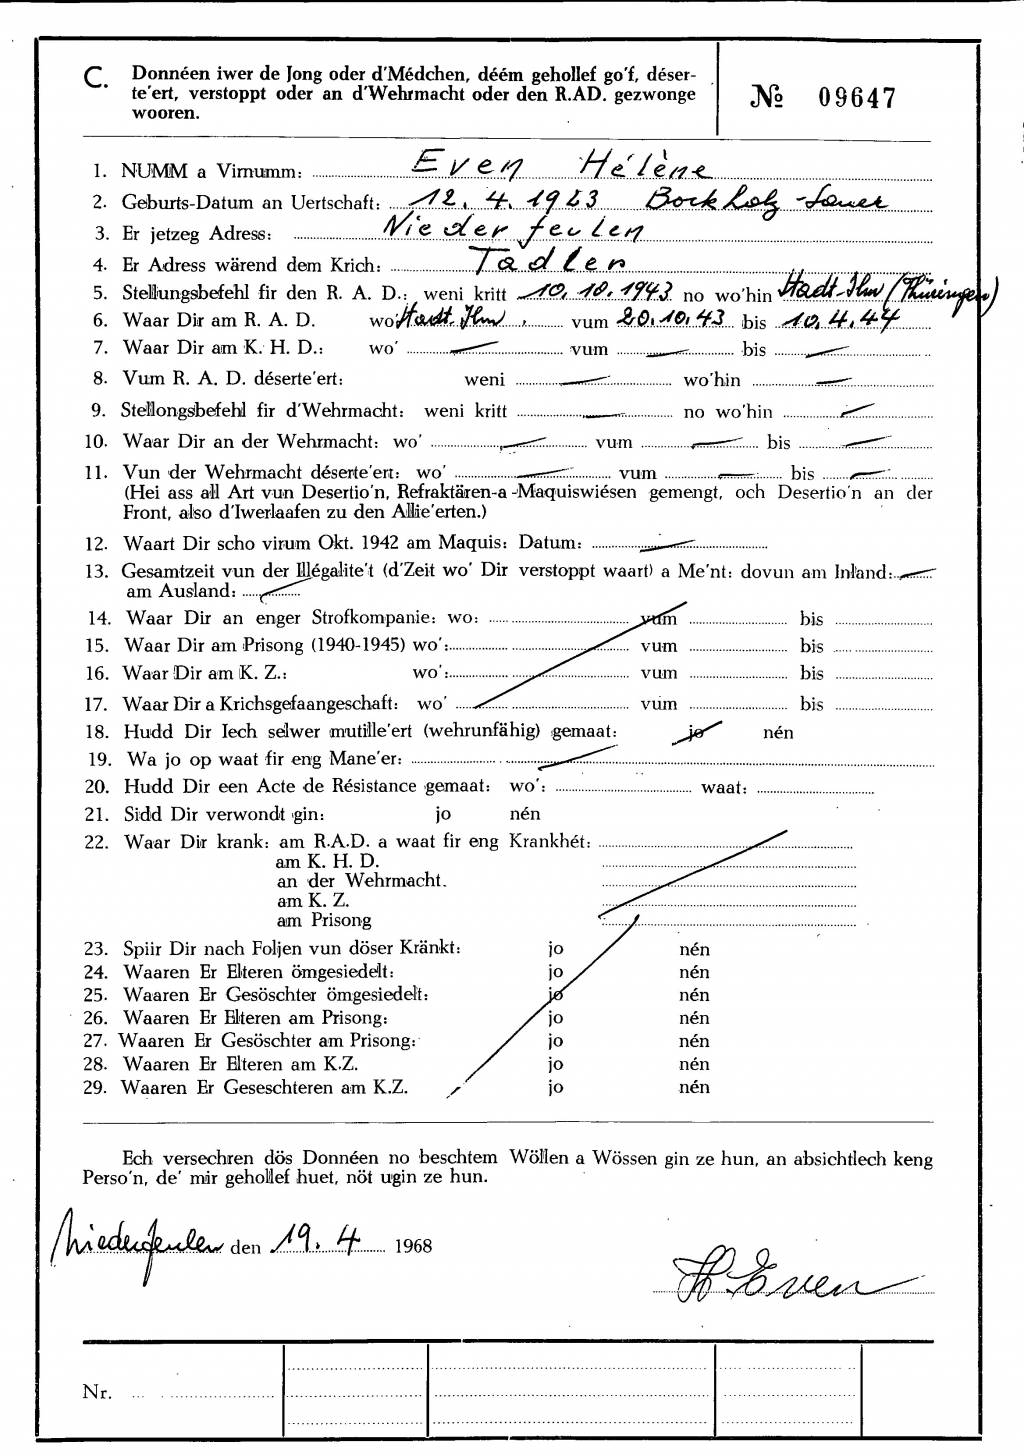 C. Donnéen iwer de Jong oder d'Médchen, déém gehollef go'f, déser-
te'ert, verstoppt oder an d'Wehrmacht oder den R.AD. gezwonge
wooren.
№ 09647
1. NUMM a Virnumm: Even Hélène
2. Geburts-Datum an Uertschaft: 12. 4. 1923 Bockholz-Sauer
3. Er jetzeg Adress: Niederfeulen
4. Er Adress wärend dem Krich: Tadler
5. Stellungsbefehl fir den R. A. D.: weni kritt 10. 10. 1943 no wo'hin Stadt-Ilm (Thüringen)
6. Waar Dir am R. A. D. wo' Stadt Ilm, vum 20.10.43 bis 10.4.44
7. Waar Dir am K. H. D.: wo' — vum — bis —
8. Vum R. A. D. déserte'ert: weni — wo'hin —
9. Stellongsbefehl fir d'Wehrmacht: weni kritt — no wo'hin —
10. Waar Dir an der Wehrmacht: wo' — vum — bis —
11. Vun der Wehrmacht déserte'ert: wo' — vum — bis —
(Hei ass all Art vun Desertio'n, Refraktären-a-Maquiswiésen gemengt, och Desertio'n an der
Front, also d'Iwerlaafen zu den Allie'erten.)
12. Waart Dir scho virum Okt. 1942 am Maquis: Datum: —
13. Gesamtzeit vun der Illégalite't (d'Zeit wo' Dir verstoppt waart) a Me'nt: dovun am Inland: —
am Ausland: —
14. Waar Dir an enger Strofkompanie: wo: vum bis
15. Waar Dir am Prisong (1940-1945) wo': vum bis
16. Waar Dir am K. Z.: wo': vum bis
17. Waar Dir a Krichsgefaangeschaft: wo' vum bis
18. Hudd Dir Iech selwer mutille'ert (wehrunfähig) gemaat: jo nén
19. Wa jo op waat fir eng Mane'er:
20. Hudd Dir een Acte de Résistance gemaat: wo': waat:
21. Sidd Dir verwondt gin: jo nén
22. Waar Dir krank: am R.A.D. a waat fir eng Krankhét:
am K. H. D.
an der Wehrmacht.
am K. Z.
am Prisong
23. Spiir Dir nach Foljen vun döser Kränkt: jo nén
24. Waaren Er Elteren ömgesiedelt: jo nén
25. Waaren Er Gesöschter ömgesiedelt: jo nén
26. Waaren Er Elteren am Prisong: jo nén
27. Waaren Er Gesöschter am Prisong: jo nén
28. Waaren Er Elteren am K.Z. jo nén
29. Waaren Er Geseschteren am K.Z. jo nén
Ech versechren dös Donnéen no beschtem Wöllen a Wössen gin ze hun, an absichtlech keng
Perso'n, de' mir gehollef huet, nöt ugin ze hun.
Niederfeulen den 19. 4 1968
H. Even
Nr.